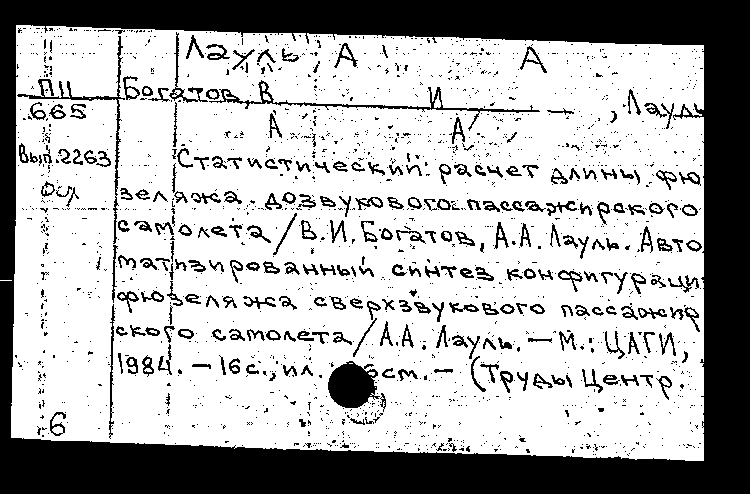 Лауль, А А
П11 Богатов, В И , Лауль
665 А А
Вып.2263 Статистический расчет длины фю
зеляжа дозвукового пассажирского
самолета / В.И. Богатов, А.А. Лауль. Авто
матизированный синтез конфигураци
фюзеляжа сверхзвукового пассажир
ского самолета / А.А. Лауль. — М.: ЦАГИ,
1984. — 16 с., ил. 6 см. — (Труды Центр.
6